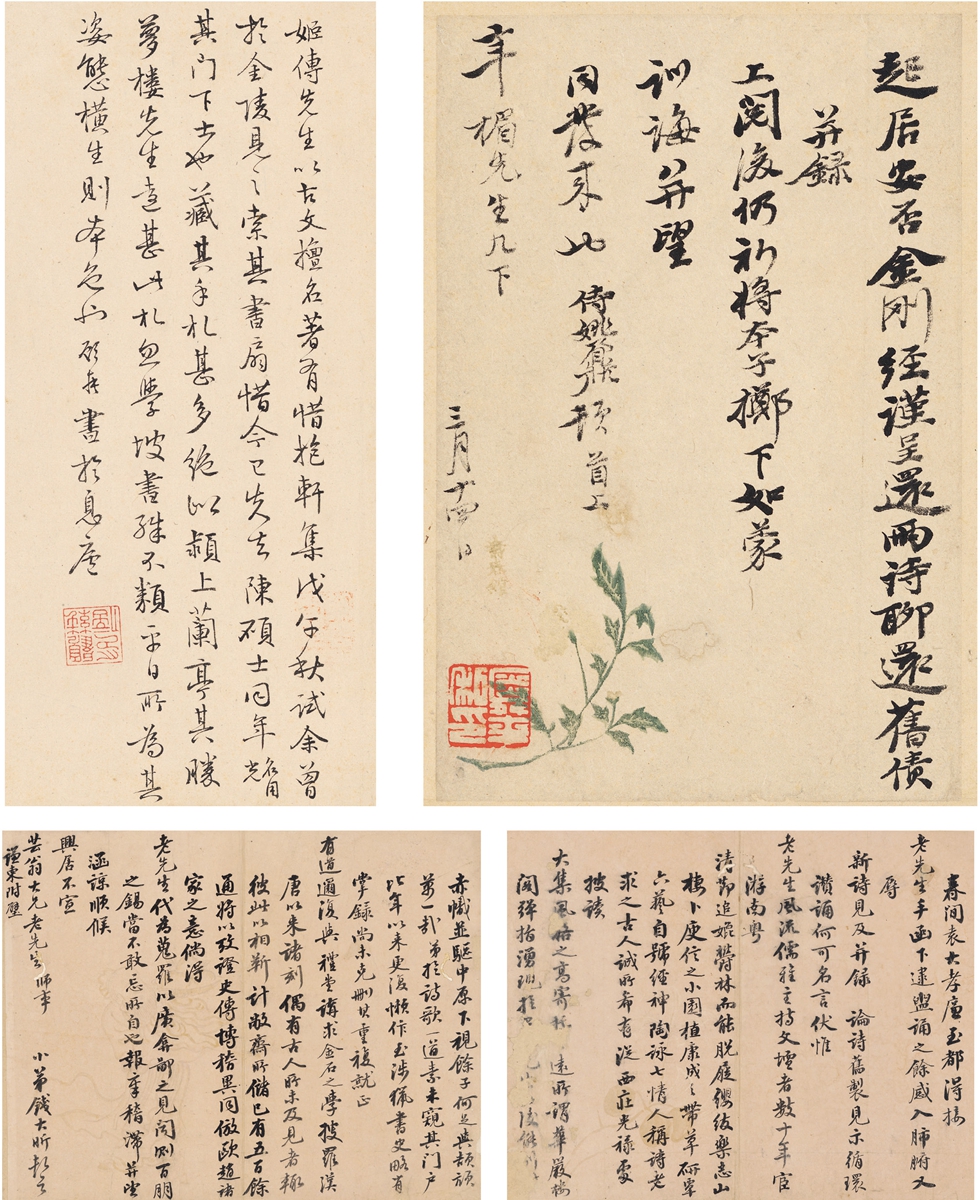 起居安否金剛經謹呈還兩詩聊還舊債
并錄
上閱後仍祈將本子擲下如蒙
訓誨并望
同發來此 侍姚鼐頓首上
平楣先生几下
三月十四日
姬傳先生以古文擅名著有惜抱軒集戊午秋試余曾
於金陵見之索其書扇惜今已失去陳碩士同年名用光
其門下士也藏其手札甚多絕似潁上蘭亭其勝
夢樓先生遠甚此札忽學坡書殊不類平日所為其
姿態橫生則本色也 書於息廬
春間袁大孝廉玉都得接
老先生手函下逮盥誦之餘感入肺腑又
辱
新詩見及并錄 論詩舊製見示循環
讚誦何可名言伏惟
老先生風流儒雅主持文壇者數十年宦
游南粵
清節追姬鬱林而能脫屣纓紱樂志山
棲卜庾信之小園植康成之帶草研覃
六藝自號經神陶詠七情人稱詩老
求之古人誠所希有從 西莊光祿處
披讀
大集風格之高寄託 遠所謂華嚴樓
閣彈指湧現
赤幟並驅中原下視餘子何足與頡頏
萬一哉弟於詩歌一道素未窺其門戶
比年以來更復懶作至涉獵書史略有
掌錄尚未克刪其重複就正
有道邇復與禮堂講求金石之學搜羅漢
唐以來諸刻偶有古人所未及見者輒
彼此以相斬計敝齋所儲已有五百餘
通將以攷證史傳博稽異同倣歐趙諸
家之意倘得
老先生代為蒐羅以廣弇鄙之見聞則百朋
之錫當不敢忘所自也報章稽滯并望
涵諒順候
興居不宣
芸翁大兄老先生 師事
小弟錢大昕頓首
謹東附璧